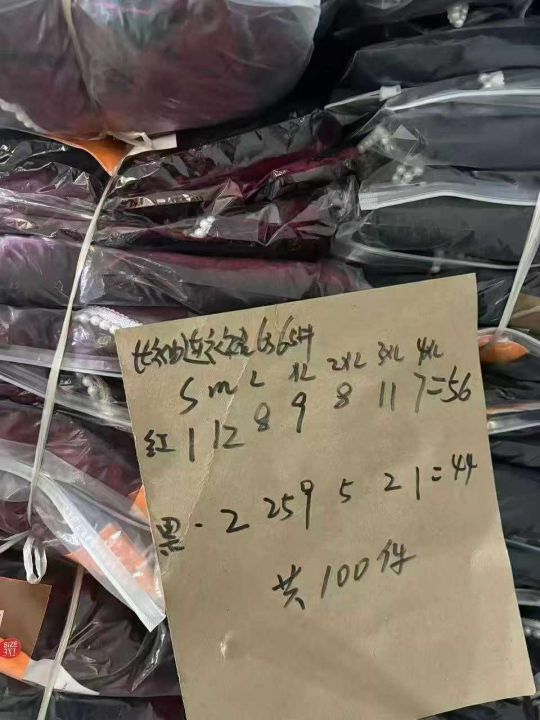 长袖连衣裙6365#
S m L XL 2XL 3XL 4XL
红 1 12 8 9 8 11 7=56
黑 - 2 25 9 5 2 1=44
共100件
SIZE